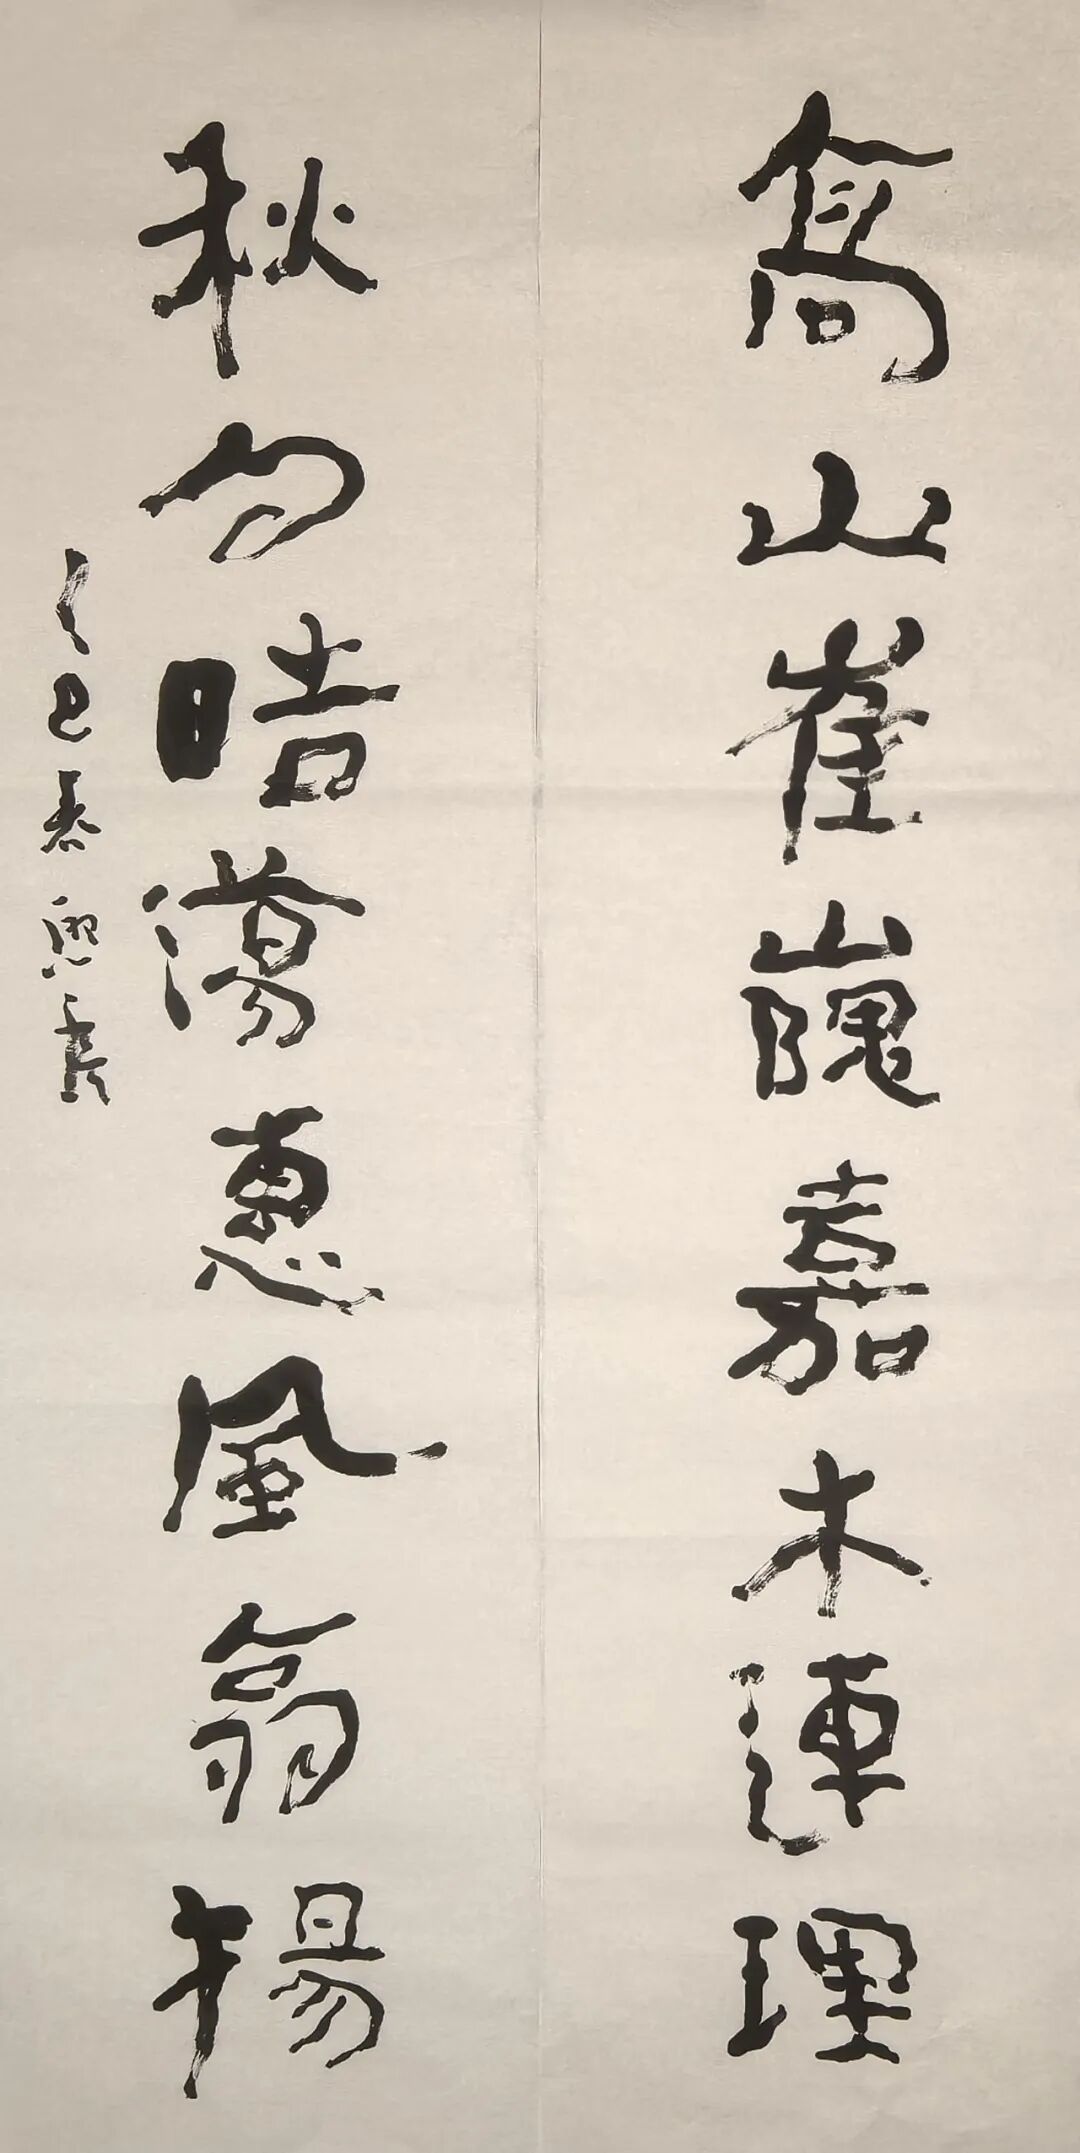 高山崔嵬嘉木連理
秋月晧蕩惠風翕揚
乙巳春